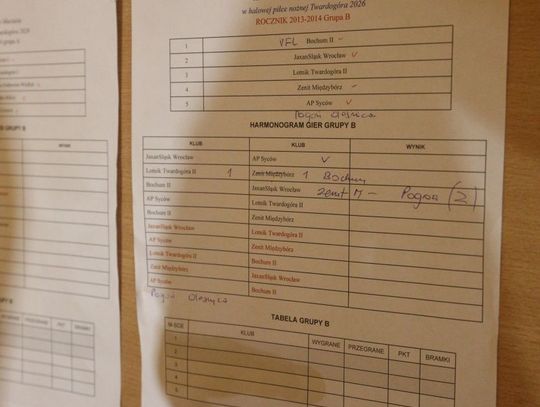 w halowej piłce nożnej Twardogóra 2026
ROCZNIK 2013-2014 Grupa B
1 VFL Bochum II -
2 JaxanŚląsk Wrocław v
3 Lotnik Twardogóra II
4 Zenit Międzybórz -
5 AP Syców v
Pogoń Oleśnica
HARMONOGRAM GIER GRUPY B
KLUB KLUB WYNIK
JaxanŚląsk Wrocław AP Syców v
Lotnik Twardogóra II 1 Zenit Międzybórz 1 Bochum
Bochum II JaxanŚląsk Wrocław Zenit M - Pogoń (2)
AP Syców Lotnik Twardogóra II
Bochum II Zenit Międzybórz
JaxanŚląsk Wrocław Lotnik Twardogóra II
AP Syców Zenit Międzybórz
Lotnik Twardogóra II Bochum II
Zenit Międzybórz JaxanŚląsk Wrocław
AP Syców Bochum II
Pogoń Oleśnica
TABELA GRUPY B
M-SCE KLUB WYGRANE PRZEGRANE PKT BRAMKI
1
2
3
4
5
GRUPY B
WYNIK
GRUPY B
WYGRANE PRZEGRANE PKT BRAMKI